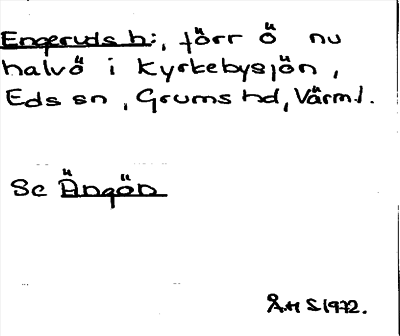 Engeruds h:, förr ö nu
halvö i Kyrkebysjön,
Eds sn, Grums hd, Värml.
Se Ängön
ÅH S 1972.